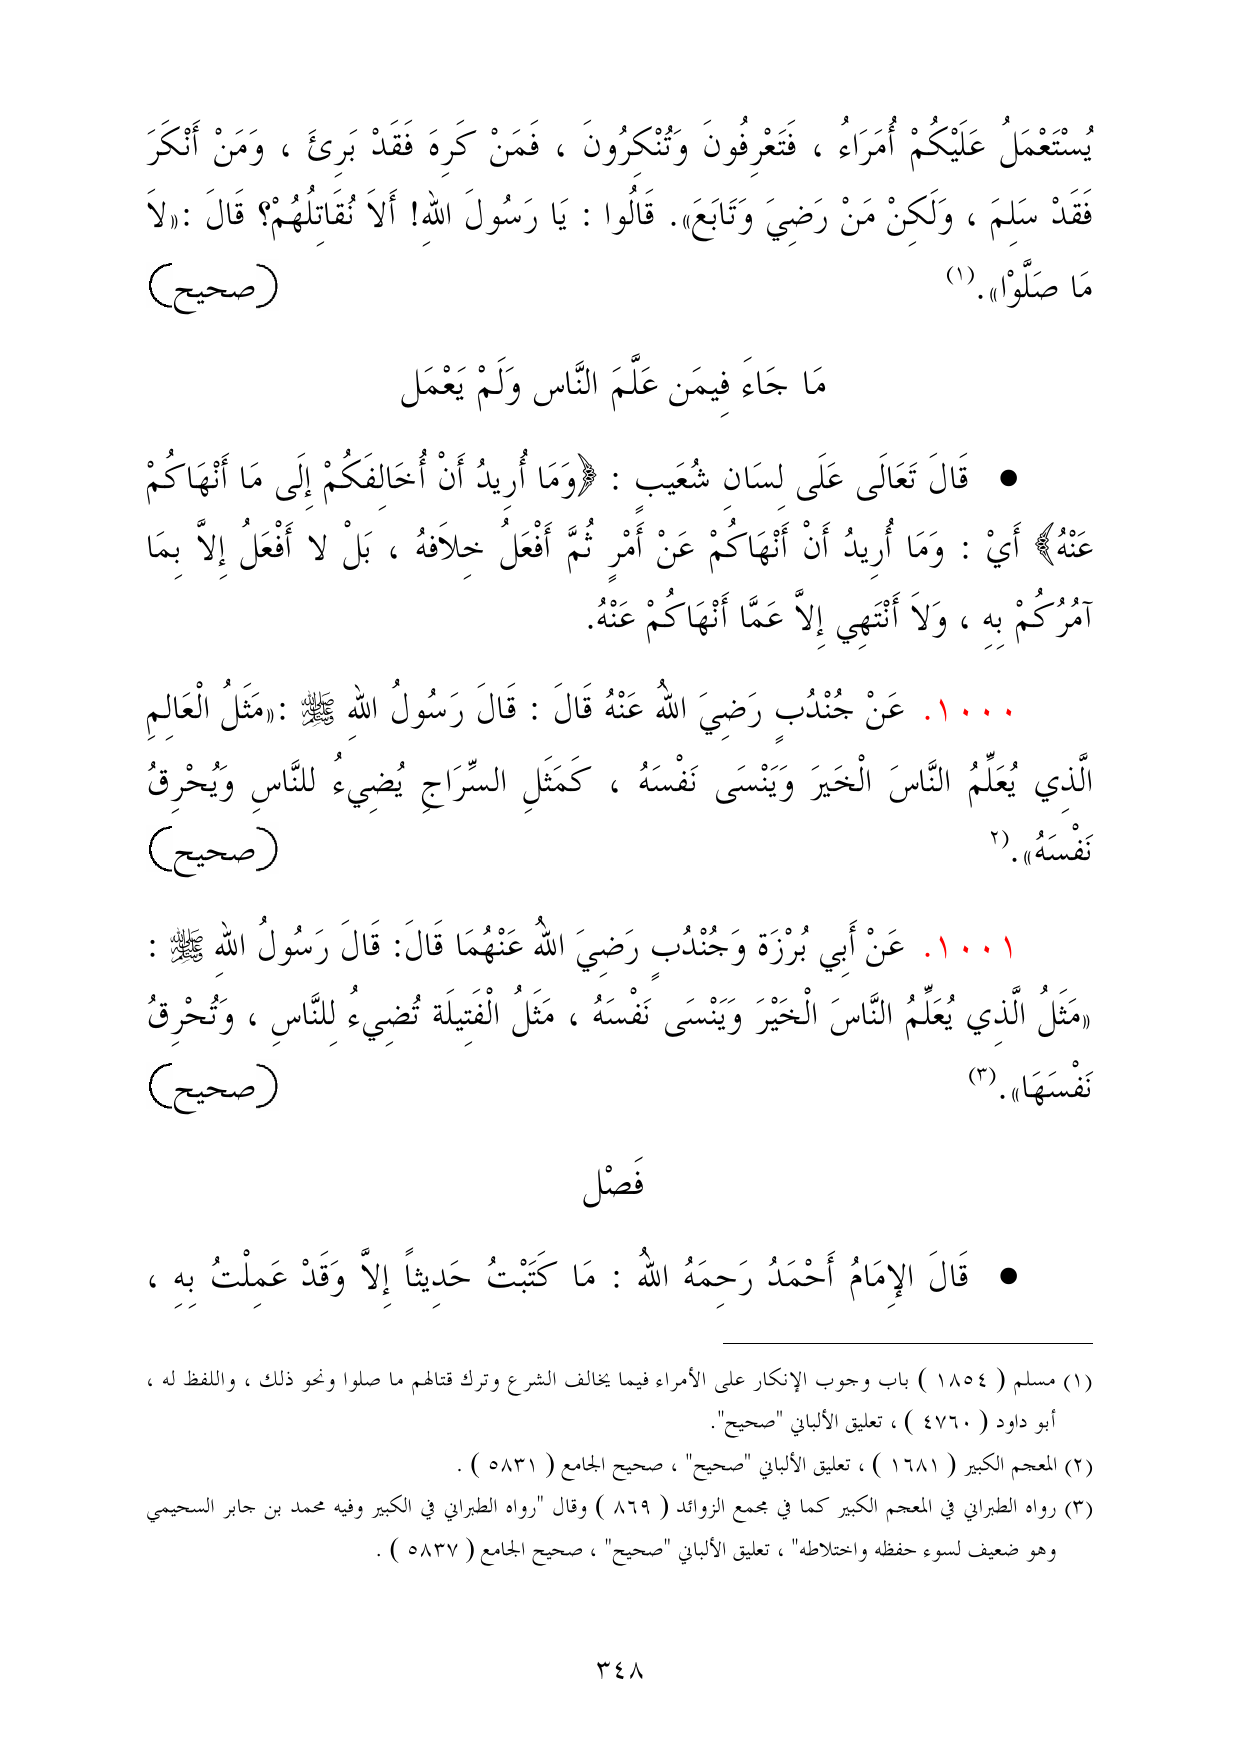 يُسْتَعْمَلُ عَلَيْكُمْ أُمَرَاءُ ، فَتَعْرِفُونَ وَتُنْكِرُونَ ، فَمَنْ كَرِهَ فَقَدْ بَرِئَ ، وَمَنْ أَنْكَرَ
فَقَدْ سَلِمَ ، وَلَكِنْ مَنْ رَضِيَ وَتَابَعَ». قَالُوا : يَا رَسُولَ اللهِ! أَلاَ نُقَاتِلُهُمْ؟ قَالَ :«لاَ
مَا صَلَّوْا».(١) (صحيح)
مَا جَاءَ فِيمَن عَلَّمَ النَّاس وَلَمْ يَعْمَل
● قَالَ تَعَالَى عَلَى لِسَانِ شُعَيبٍ : ﴿وَمَا أُرِيدُ أَنْ أُخَالِفَكُمْ إِلَى مَا أَنْهَاكُمْ
عَنْهُ﴾ أَيْ : وَمَا أُرِيدُ أَنْ أَنْهَاكُمْ عَنْ أَمْرٍ ثُمَّ أَفْعَلُ خِلاَفهُ ، بَلْ لا أَفْعَلُ إِلاَّ بِمَا
آمُرُكُمْ بِهِ ، وَلاَ أَنْتَهِي إِلاَّ عَمَّا أَنْهَاكُمْ عَنْهُ.
١٠٠٠. عَنْ جُنْدُبٍ رَضِيَ اللهُ عَنْهُ قَالَ : قَالَ رَسُولُ اللهِ ﷺ :«مَثَلُ الْعَالِمِ
الَّذِي يُعَلِّمُ النَّاسَ الْخَيرَ وَيَنْسَى نَفْسَهُ ، كَمَثَلِ السِّرَاجِ يُضِيءُ للنَّاسِ وَيُحْرِقُ
نَفْسَهُ».(٢ (صحيح)
١٠٠١. عَنْ أَبِي بُرْزَة وَجُنْدُبٍ رَضِيَ اللهُ عَنْهُمَا قَالَ: قَالَ رَسُولُ اللهِ ﷺ :
«مَثَلُ الَّذِي يُعَلِّمُ النَّاسَ الْخَيْرَ وَيَنْسَى نَفْسَهُ ، مَثَلُ الْفَتِيلَة تُضِيءُ لِلنَّاسِ ، وَتُحْرِقُ
نَفْسَهَا».(٣) (صحيح)
فَصْل
● قَالَ الإِمَامُ أَحْمَدُ رَحِمَهُ اللهُ : مَا كَتَبْتُ حَدِيثاً إِلاَّ وَقَدْ عَمِلْتُ بِهِ ،
(١) مسلم ( ١٨٥٤ ) باب وجوب الإنكار على الأمراء فيما يخالف الشرع وترك قتالهم ما صلوا ونحو ذلك ، واللفظ له ،
أبو داود ( ٤٧٦٠ ) ، تعليق الألباني "صحيح".
(٢) المعجم الكبير ( ١٦٨١ ) ، تعليق الألباني "صحيح" ، صحيح الجامع ( ٥٨٣١ ) .
(٣) رواه الطبراني في المعجم الكبير كما في مجمع الزوائد ( ٨٦٩ ) وقال "رواه الطبراني في الكبير وفيه محمد بن جابر السحيمي
وهو ضعيف لسوء حفظه واختلاطه" ، تعليق الألباني "صحيح" ، صحيح الجامع ( ٥٨٣٧ ) .
٣٤٨